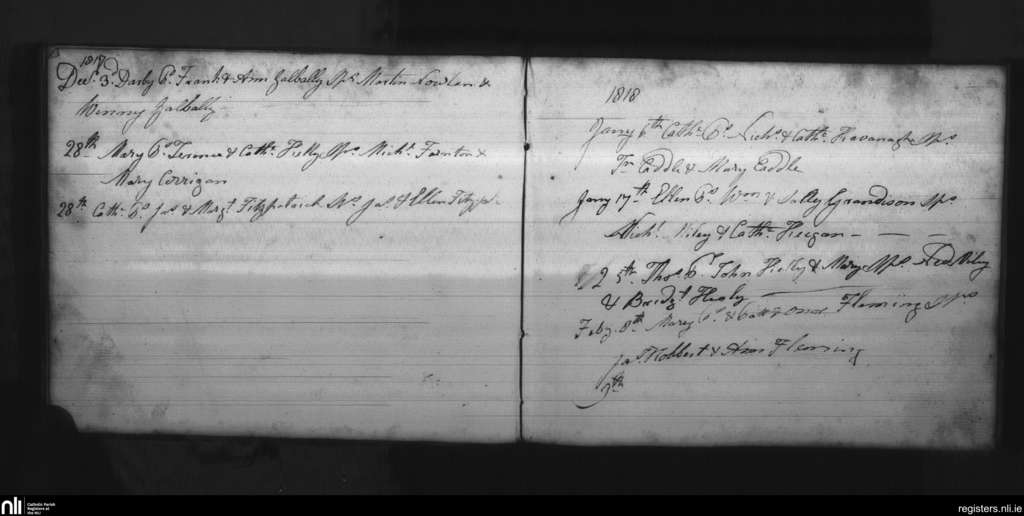 1817
Decr. 3d. Darby Ps. Frank & Ann Galbally Sps. Martin Nowlan &
Winny Galbally
28th Mary Ps. Terence & Cathe. Hisky Sps. Michl.
Mary Corrigan
28th. Cath. Ps. Jas. & Margt. Fitzpatrick Sps. Jas. & Ellen Fitzp.
1818
Jany 6th Cathe. Ps. Nichs. & Cathe. Kavanagh Sps.
Caddle & Mary Caddle
Jany 17th Ellen Ps. Wm & Sally Grandison Sps
Michl. Riley & Cathe. Keegan - - -
25th. Thos. Ps. John & Mary Sps. Riley
& Bridgt
Feby. 8th Mary Ps. & Fleming Sps
Jas. & Ann Fleming
9th
nli
Catholic Parish
Registers at
the NLI
registers.nli.ie